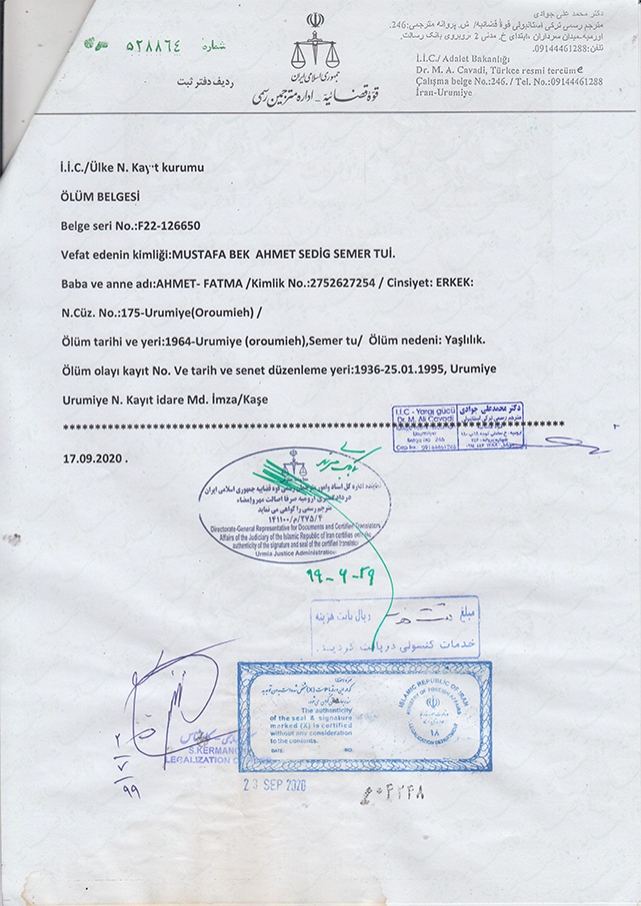 دکتر محمد علی جوادی
مترجم رسمی ترکی استانبولی قوۀ قضائیه/ ش. پروانه مترجمی:246.
اورمیه-میدان سرداران -ابتدای خ. مدنی 2 -روبروی بانک رسالت.
تلفن:09144461288.
İ.İ.C./ Adalet Bakanlığı
Dr. M. A. Cavadi, Türkce resmi tercüme
Çalışma belge No.:246. / Tel. No.:09144461288
İran-Urumiye
جمهوری اسلامی ایران
قوه قضائیه - اداره مترجمین رسمی
شماره ۵۲۸۸۶۴
ردیف دفتر ثبت
İ.İ.C./Ülke N. Kayıt kurumu
ÖLÜM BELGESİ
Belge seri No.:F22-126650
Vefat edenin kimliği:MUSTAFA BEK AHMET SEDİG SEMER TUİ.
Baba ve anne adı:AHMET- FATMA /Kimlik No.:2752627254 / Cinsiyet: ERKEK:
N.Cüz. No.:175-Urumiye(Oroumieh) /
Ölüm tarihi ve yeri:1964-Urumiye (oroumieh),Semer tu/ Ölüm nedeni: Yaşlılık.
Ölüm olayı kayıt No. Ve tarih ve senet düzenleme yeri:1936-25.01.1995, Urumiye
Urumiye N. Kayıt idare Md. İmza/Kaşe
İ.İ.C - Yargı gücü
Dr. M. Ali Cavadi
Urumiye
Belge no: 246
دکتر محمدعلی جوادی
مترجم رسمی ترکی استانبولی
*****************************************************************
17.09.2020 .
نماینده اداره کل اسناد و امور مترجمان رسمی قوه قضاییه جمهوری اسلامی ایران
در دادگستری ارومیه صرفا اصالت مهر و امضاء
مترجم رسمی را گواهی می نماید
۱۴۱۱۰۰/م/۲۷۵/۴
Directorate-General Representative for Documents and Certified Translators
Affairs of the Judiciary of the Islamic Republic of Iran certifies only the
authenticity of the signature and seal of the certified translator
Urmia Justice Administration
۹۹-۶-۲۹
مبلغ ریال بابت هزینه
خدمات کنسولی دریافت گردید.
The authenticity
of the seal & signature
marked (X) is certified
without any consideration
to the contents.
DATE: NO.
ISLAMIC REPUBLIC OF IRAN
MINISTRY OF FOREIGN AFFAIRS
۱۸
LEGALIZATION DEPARTMENT
S.KERMANI
LEGALIZATION
۲/۷/۹۹
23 SEP 2020